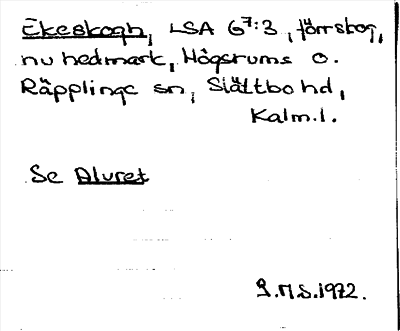 Ekeskogh, LSA G7:3, förr skog,
nu hedmark, Högsrums o.
Räpplinge sn, Slättbo hd,
Kalm.l.
Se Alvret
G.M.S. 1972.